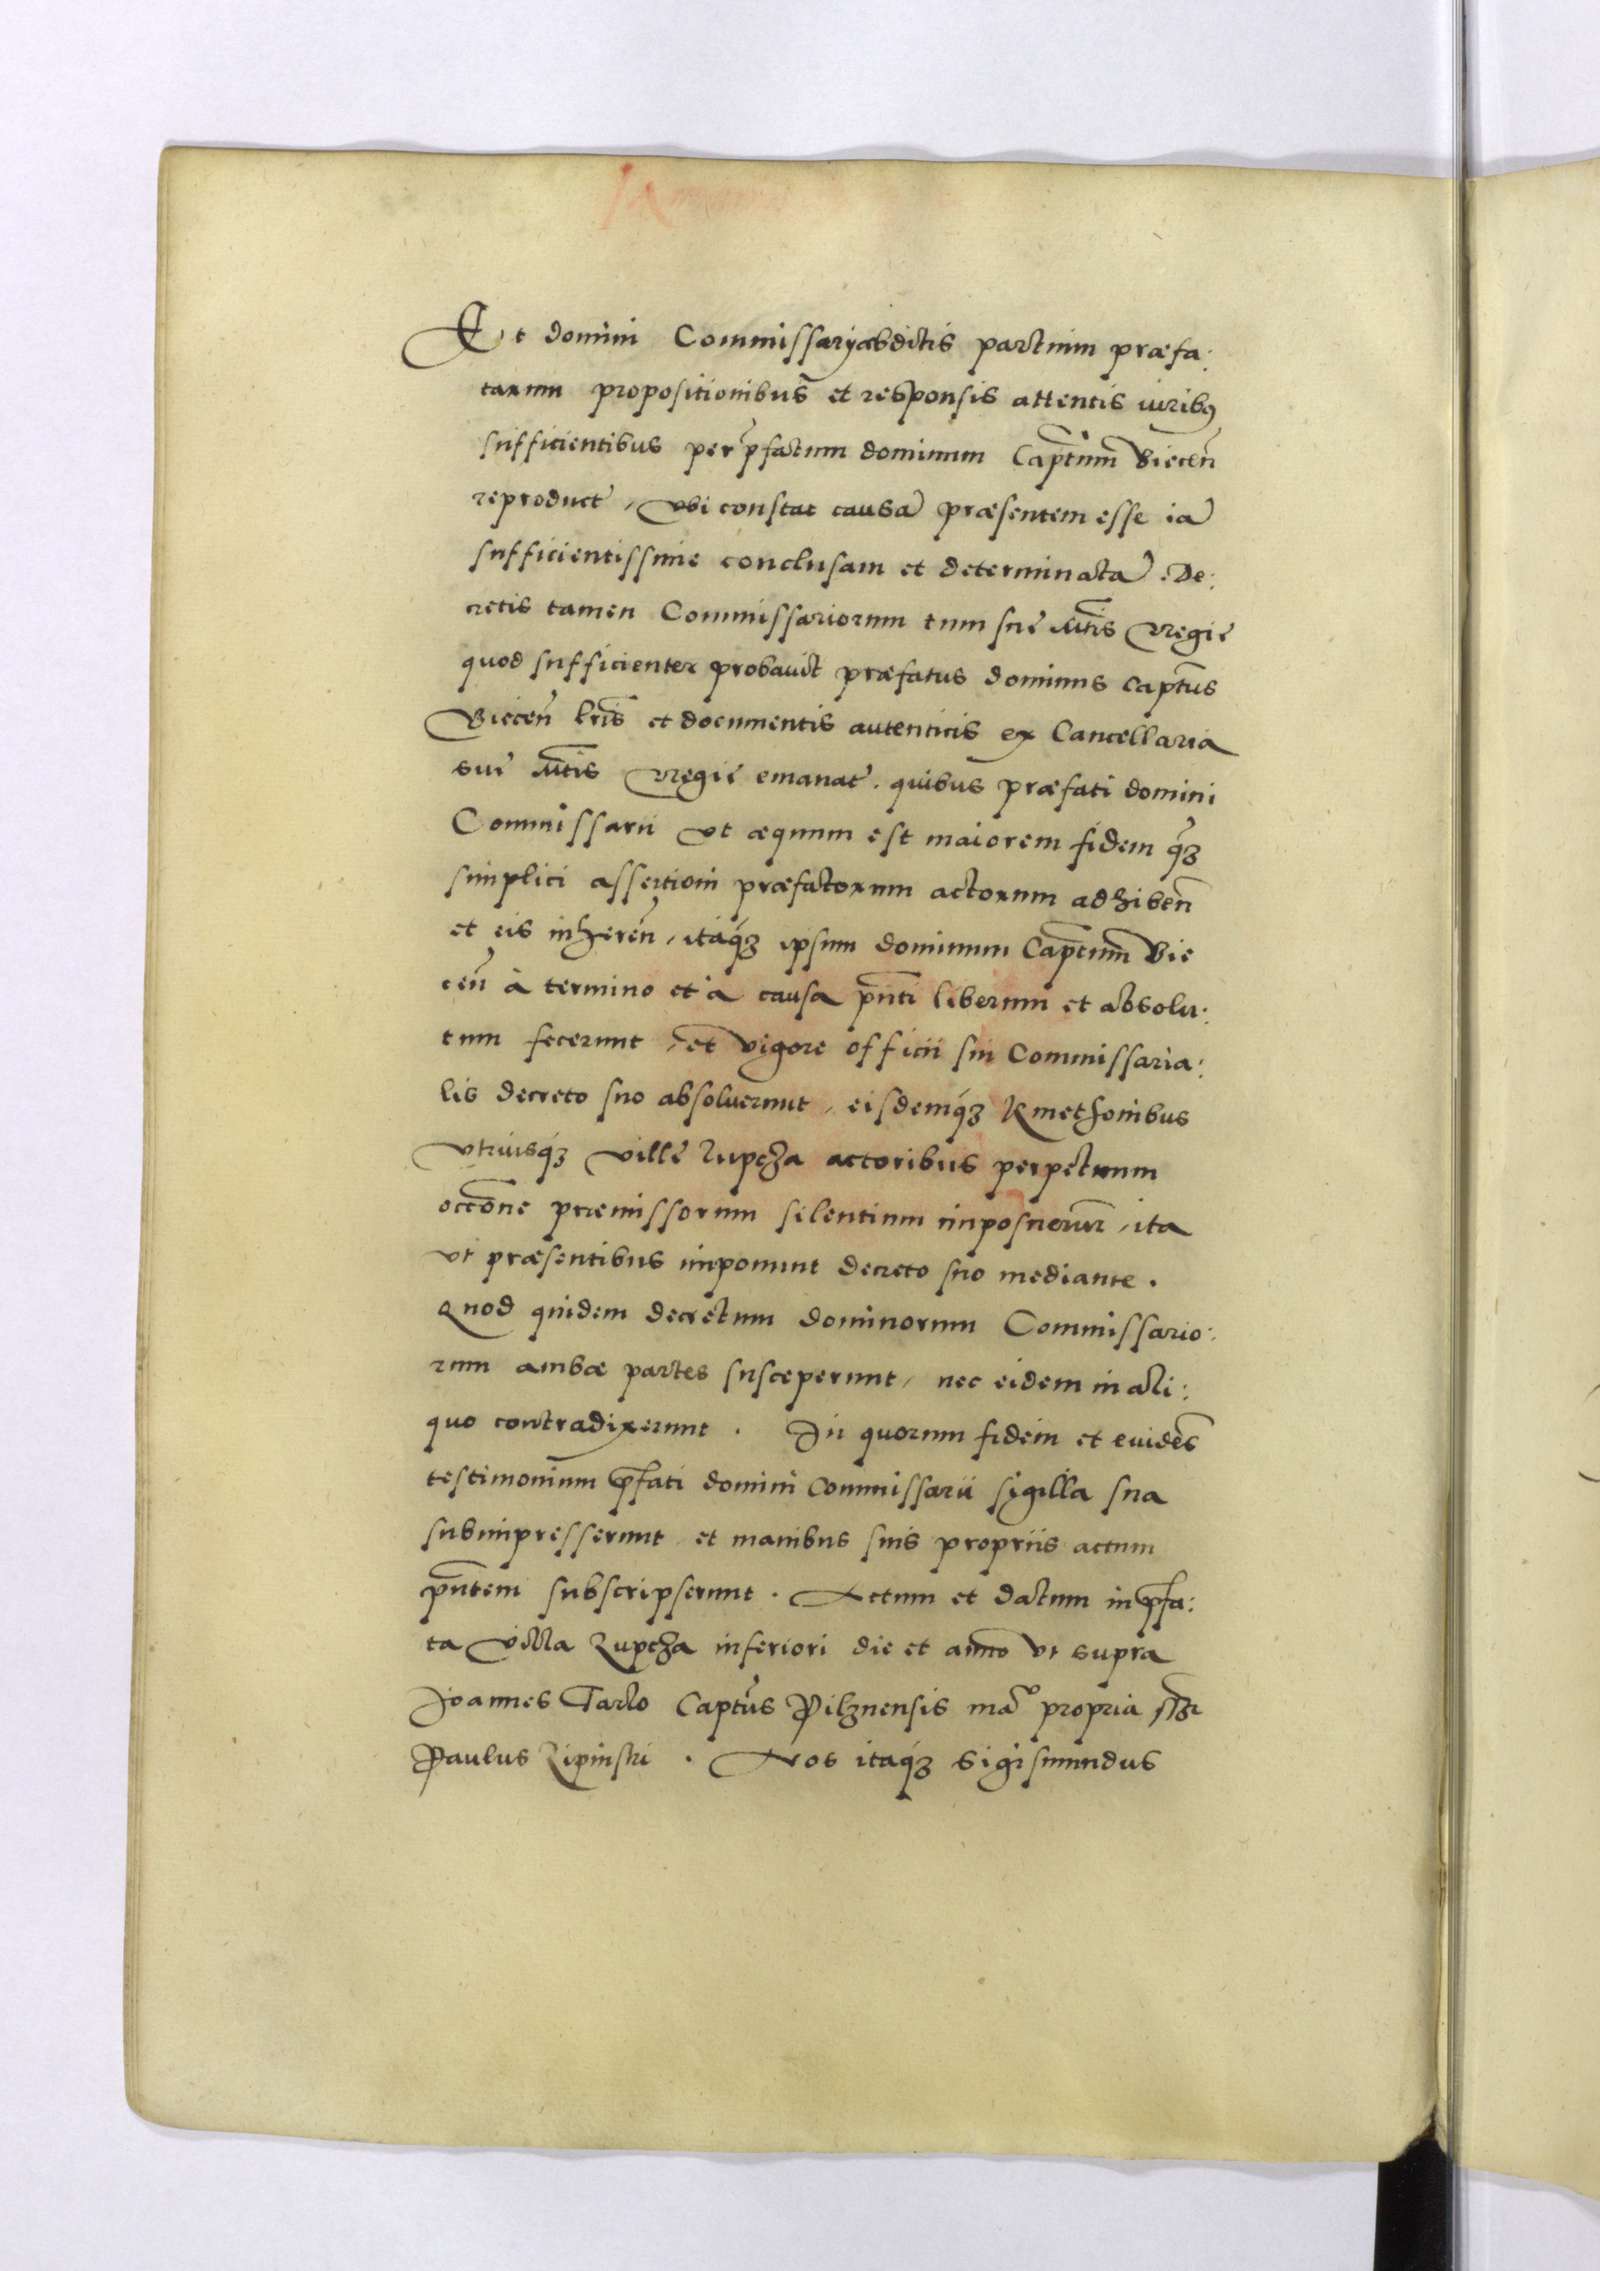 Et domini Commissarij abditis partium præfa:
tarum propositionibus et responsis attentis iuribꝫ
sufficientibus per p̄fatum dominum Captum̄ Biecen̄
reproduct, vbi constat causā præsentem esse iā
sufficientissime conclusam et determinatā. De:
cretis tamen Commissariorum tum sue Mt̄is Regie
quod sufficienter probauit præfatus dominus Capt̄us
Biecen̄ lr̄is et documentis autenticis ex Cancellaria
sue Mt̄is Regie emanat. quibus præfati domini
Commissarii vt æquum est maiorem fidem q̄ꝫ
simplici assertioni præfatorum actorum adhiben̄
et eis inheren̄, itaqꝫ ipsum dominum Captum̄ Bie
cen̄ à termino et à causa pn̄ti liberum et absolu:
tum fecerunt, et vigore officii sui Commissaria:
lis decreto suo absoluerunt, eisdemqꝫ Kmethonibus
vtriusqꝫ ville Lupcza actoribus perpetuum
occōne præmissorum silentium imposuerunt, ita
vt præsentibus imponunt decreto suo mediante.
Quod quidem decretum dominorum Commissario:
rum ambæ partes susceperunt, nec eidem in ali:
quo contradixerunt. In quorum fidem et euidēs
testimonium p̄fati domini Commissarii sigilla sua
subimpresserunt et manibus suis propriis actum
pn̄tem subscripserunt. Actum et datum in p̄fa:
ta villa Lupcza inferiori die et anno vt supra
Joannes Tarlo Capt̄us Pilznensis mā propria
Paulus Lipinski. Nos itaqꝫ Sigismundus